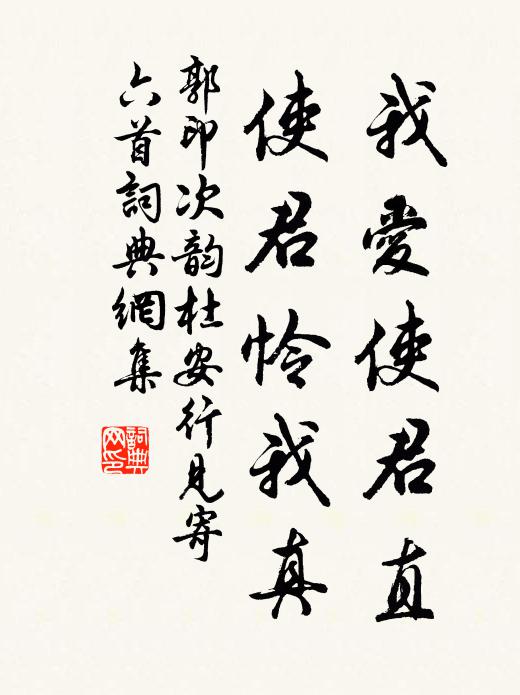 我愛使君直
使君怜我真
郭印次韵杜安行見寄
六首詞典網集
詞典
网印